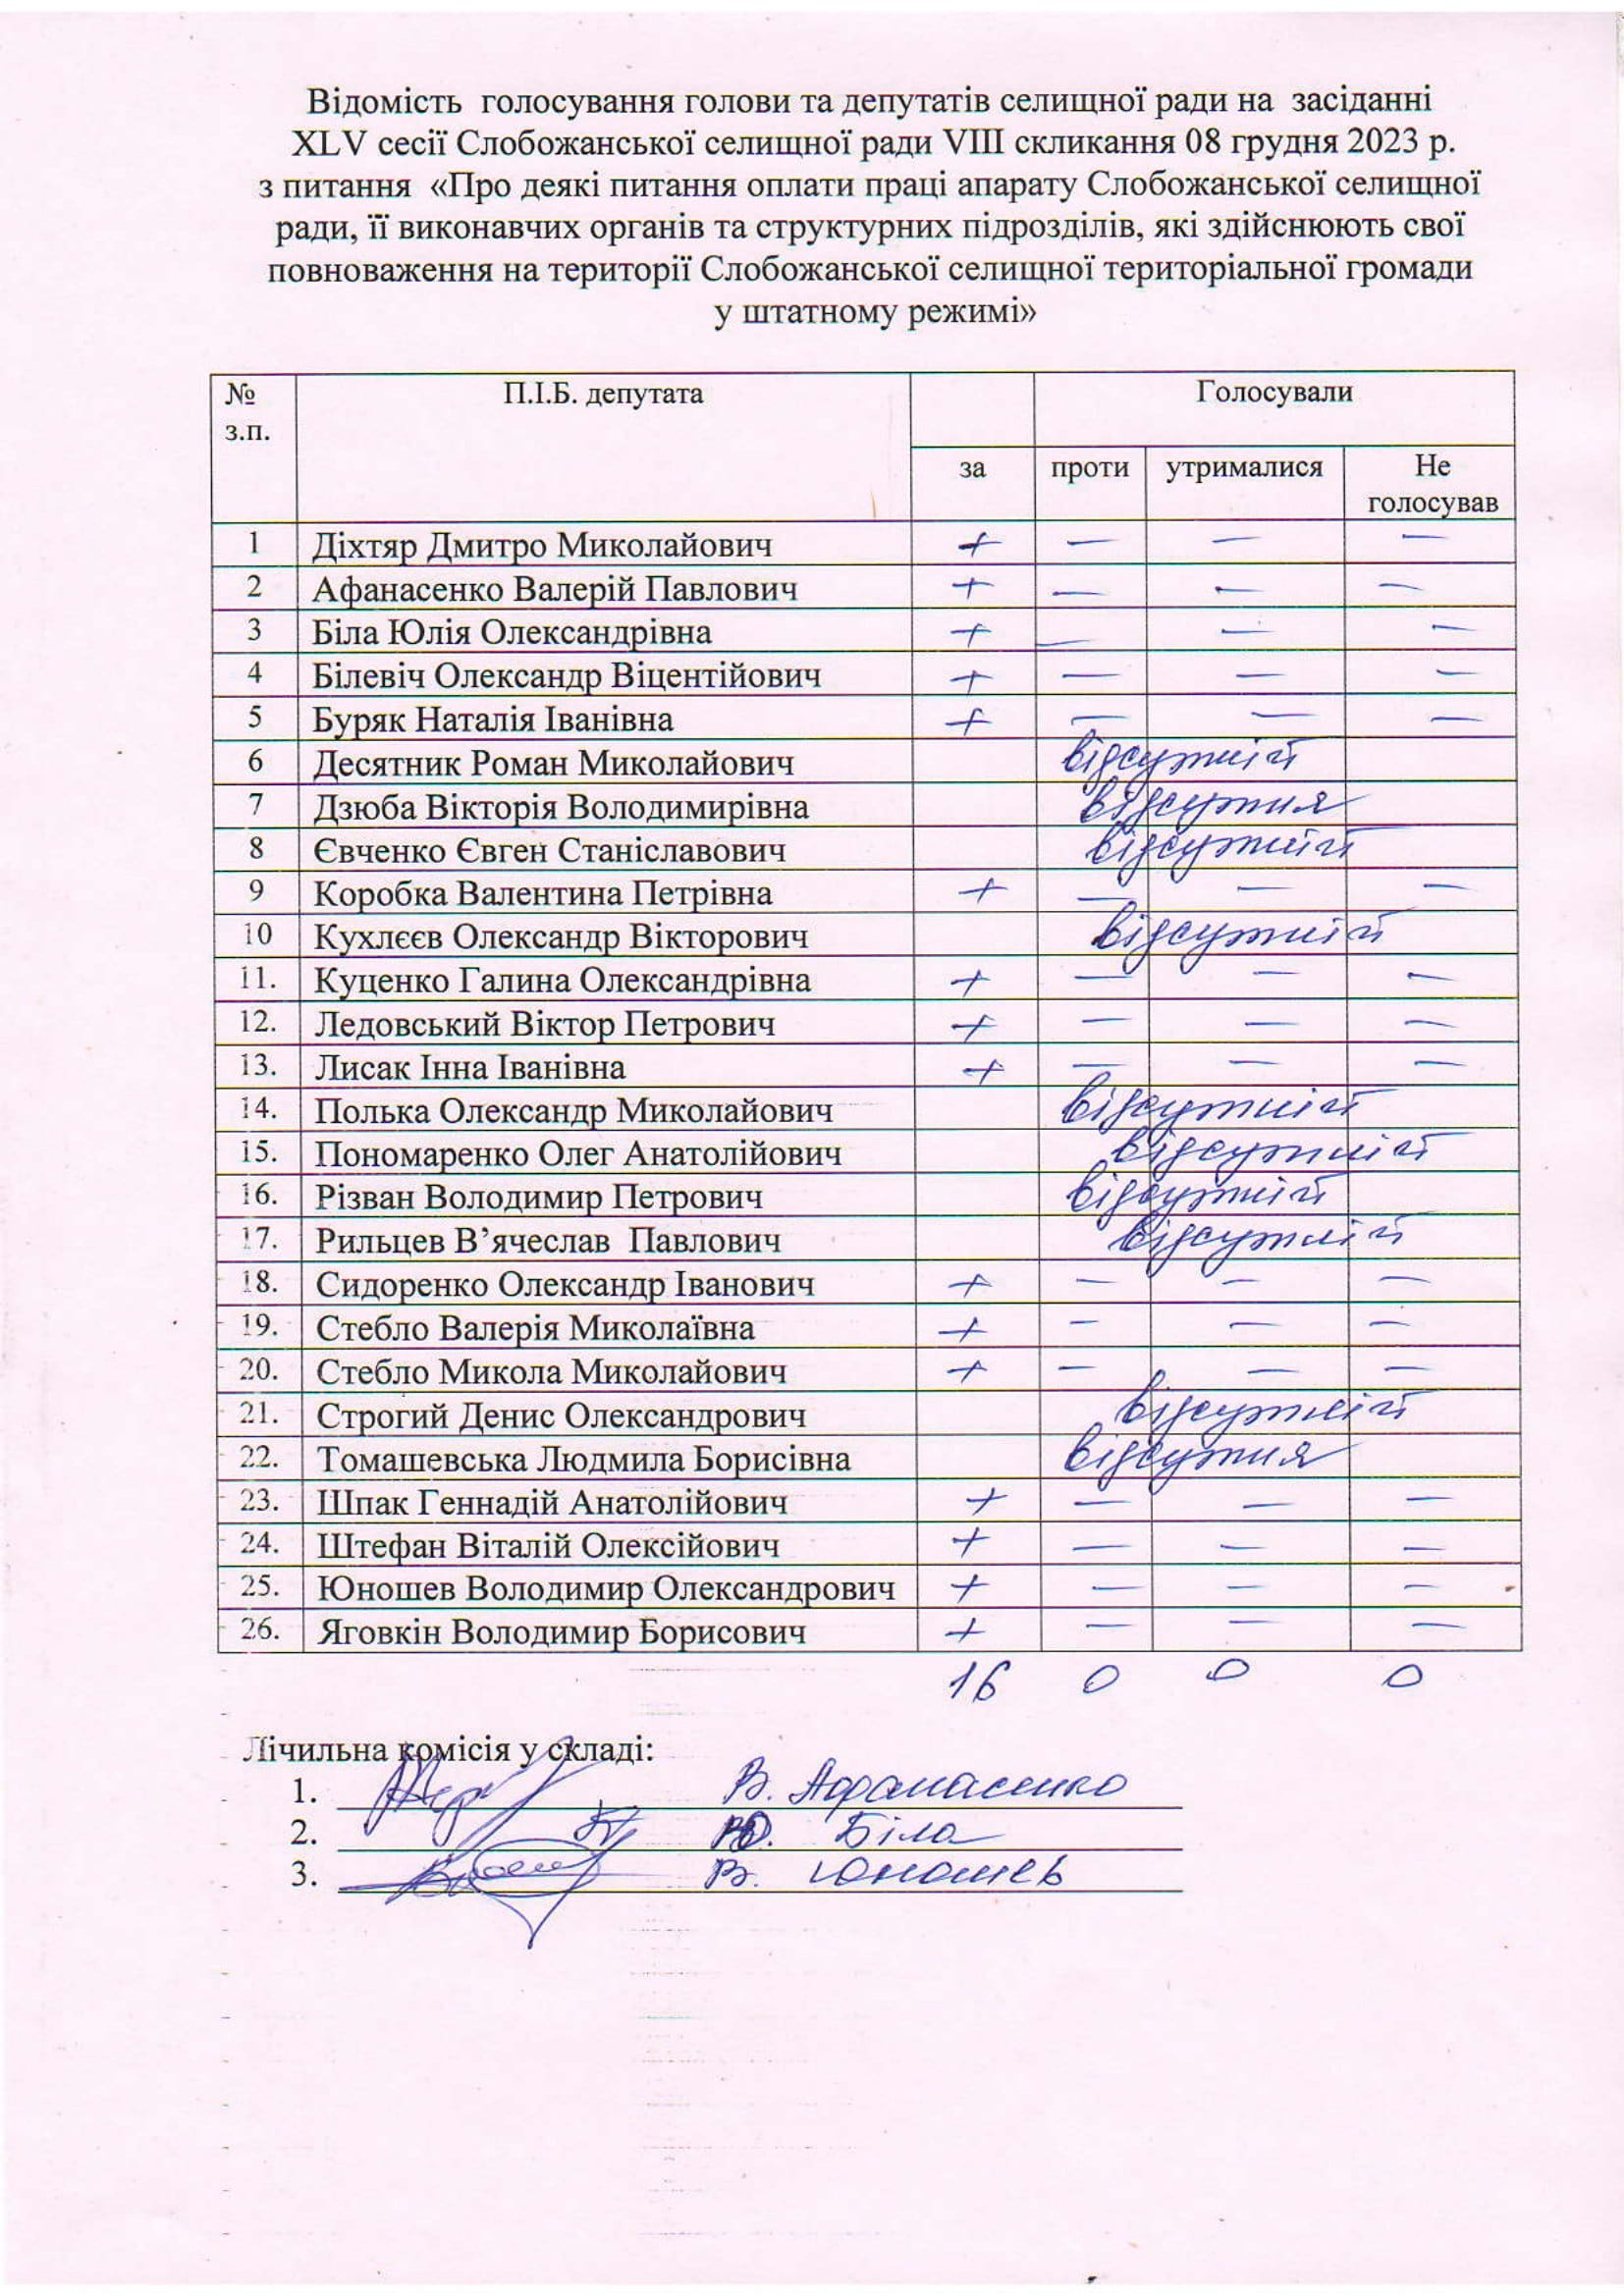 Відомість голосування голови та депутатів селищної ради на засіданні
XLV сесії Слобожанської селищної ради VIII скликання 08 грудня 2023 р.
з питання «Про деякі питання оплати праці апарату Слобожанської селищної
ради, її виконавчих органів та структурних підрозділів, які здійснюють свої
повноваження на території Слобожанської селищної територіальної громади
у штатному режимі»
№ П.І.Б. депутата Голосували
з.п.
за проти утрималися Не
голосував
1 Діхтяр Дмитро Миколайович + — — —
2 Афанасенко Валерій Павлович + — — —
3 Біла Юлія Олександрівна + — — —
4 Білевіч Олександр Віцентійович + — — —
5 Буряк Наталія Іванівна + — — —
6 Десятник Роман Миколайович відсутній
7 Дзюба Вікторія Володимирівна відсутня
8 Євченко Євген Станіславович відсутній
9 Коробка Валентина Петрівна + — — —
10 Кухлєєв Олександр Вікторович відсутній
11. Куценко Галина Олександрівна + — — —
12. Ледовський Віктор Петрович + — — —
13. Лисак Інна Іванівна + — — —
14. Полька Олександр Миколайович відсутній
15. Пономаренко Олег Анатолійович відсутній
16. Різван Володимир Петрович відсутній
17. Рильцев В’ячеслав Павлович відсутній
18. Сидоренко Олександр Іванович + — — —
19. Стебло Валерія Миколаївна + — — —
20. Стебло Микола Миколайович + — — —
21. Строгий Денис Олександрович відсутній
22. Томашевська Людмила Борисівна відсутня
23. Шпак Геннадій Анатолійович + — — —
24. Штефан Віталій Олексійович + — — —
25. Юношев Володимир Олександрович + — — —
26. Яговкін Володимир Борисович + — — —
16 0 0 0
Лічильна комісія у складі:
1. В. Афанасенко
2. Ю. Біла
3. В. Юношев